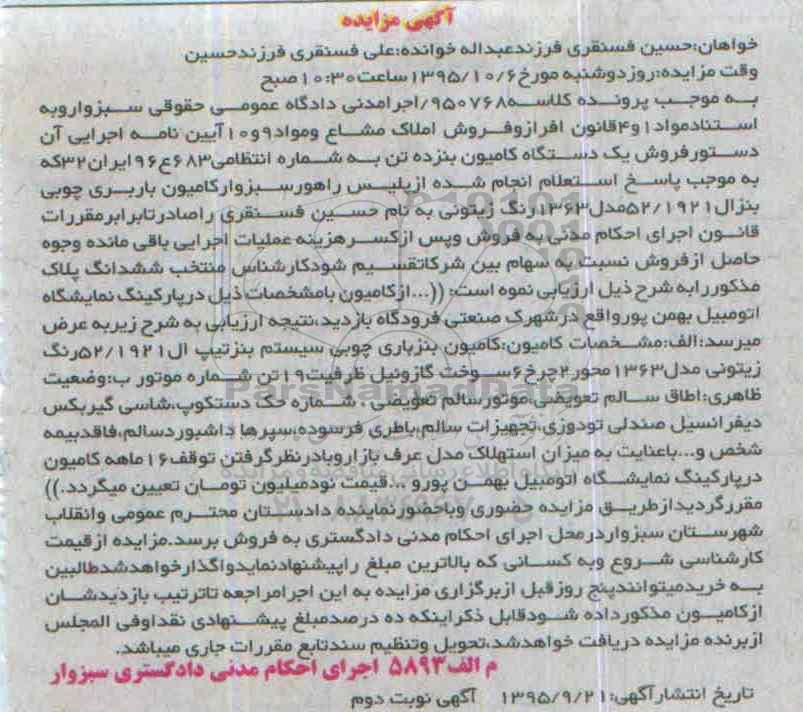 آگهی مزایده
خواهان:حسین فسنقری فرزندعبداله خوانده:علی فسنقری فرزندحسین
وقت مزایده:روزدوشنبه مورخ۱۳۹۵/۱۰/۶ساعت۱۰:۳۰صبح
به موجب پرونده کلاسه۹۵۰۷۶۸/اجرامدنی دادگاه عمومی حقوقی سبزواروبه
استنادمواد۱و۴قانون افرازوفروش املاک مشاع ومواد۹و۱۰آیین نامه اجرایی آن
دستورفروش یک دستگاه کامیون بنزده تن به شماره انتظامی۶۸۳ع۹۶ایران۳۲که
به موجب پاسخ استعلام انجام شده ازپلیس راهورسبزوارکامیون باربری چوبی
بنزال۵۲/۱۹۲۱مدل۱۳۶۳رنگ زیتونی به نام حسین فسنقری راصادرتابرابرمقررات
قانون اجرای احکام مدنی به فروش وپس ازکسرهزینه عملیات اجرایی باقی مانده وجوه
حاصل ازفروش نسبت به سهام بین شرکاتقسیم شودکارشناس منتخب ششدانگ پلاک
مذکوررابه شرح ذیل ارزیابی نموه است: ((...ازکامیون بامشخصات ذیل درپارکینگ نمایشگاه
اتومبیل بهمن پورواقع درشهرک صنعتی فرودگاه بازدید،نتیجه ارزیابی به شرح زیربه عرض
میرسد:الف:مشخصات کامیون:کامیون بنزباری چوبی سیستم بنزتیپ ال۵۲/۱۹۲۱رنگ
زیتونی مدل۱۳۶۳محور۲چرخ۶سوخت گازوئیل ظرفیت۱۹تن شماره موتور ب:وضعیت
ظاهری:اطاق سالم تعویضی،موتورسالم تعویضی ، شماره حک دستکوپ،شاسی گیربکس
دیفرانسیل صندلی تودوزی،تجهیزات سالم،باطری فرسوده،سپرها داشبوردسالم،فاقدبیمه
شخص و...باعنایت به میزان استهلاک مدل عرف بازاروبادرنظرگرفتن توقف۱۶ماهه کامیون
درپارکینگ نمایشگاه اتومبیل بهمن پورو ...قیمت نودمیلیون تومان تعیین میگردد.))
مقررگردیدازطریق مزایده حضوری وباحضورنماینده دادستان محترم عمومی وانقلاب
شهرستان سبزواردرمحل اجرای احکام مدنی دادگستری به فروش برسد.مزایده ازقیمت
کارشناسی شروع وبه کسانی که بالاترین مبلغ راپیشنهادنمایدواگذارخواهدشدطالبین
به خریدمیتوانندپنج روزقبل ازبرگزاری مزایده به این اجرامراجعه تاترتیب بازدیدشان
ازکامیون مذکورداده شودقابل ذکراینکه ده درصدمبلغ پیشنهادی نقداوفی المجلس
ازبرنده مزایده دریافت خواهدشد،تحویل وتنظیم سندتابع مقررات جاری میباشد.
م الف۵۸۹۳ اجرای احکام مدنی دادگستری سبزوار
تاریخ انتشارآگهی:۱۳۹۵/۹/۲۱ آگهی نوبت دوم
ParsNamadData